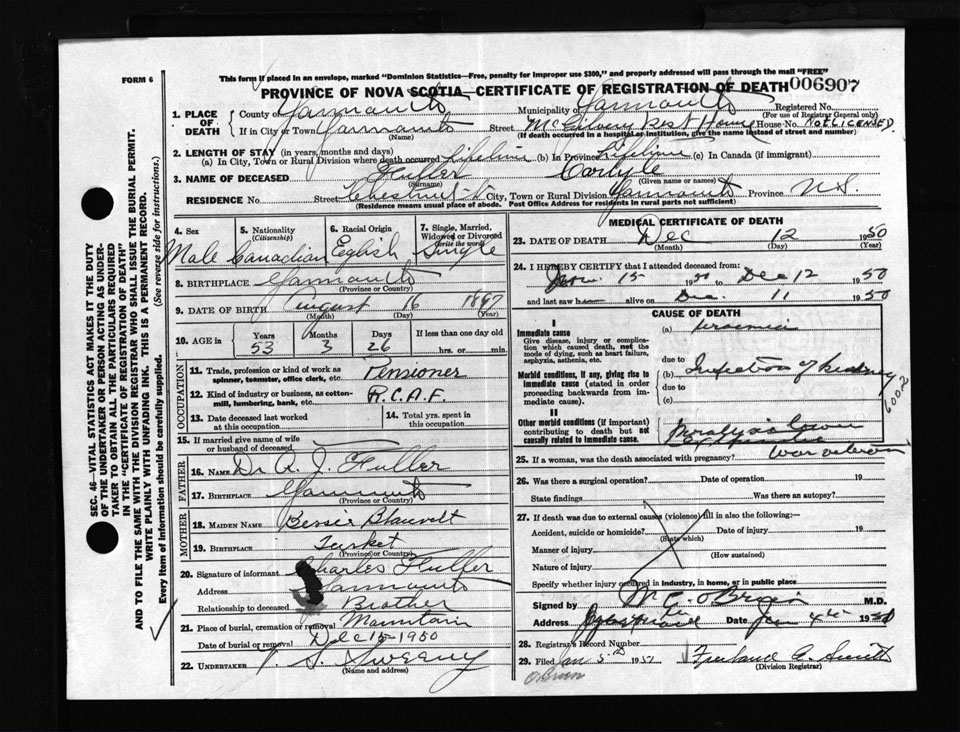 FORM 6
This form if placed in an envelope, marked "Dominion Statistics—Free, penalty for improper use $300," and properly addressed will pass through the mail "FREE"
PROVINCE OF NOVA SCOTIA—CERTIFICATE OF REGISTRATION OF DEATH 006907
1. PLACE OF DEATH
County of Yarmouth Municipality of Yarmouth Registered No.
(For use of Registrar General only)
If in City or Town Yarmouth Street McGilvery Rest Home House No. NOT LICENSED.
(Name) (If death occurred in a hospital or institution, give the name instead of street and number)
2. LENGTH OF STAY (in years, months and days)
(a) In City, Town or Rural Division where death occurred Lifetime (b) In Province Lifetime (c) In Canada (if immigrant)
3. NAME OF DECEASED Fuller Carlyle
(Surname) (Given name or names)
RESIDENCE No. Street Chestnut St City, Town or Rural Division Yarmouth Province N.S.
(Residence means usual place of abode. Post Office Address for residents in rural parts not sufficient)
4. Sex 5. Nationality (Citizenship) 6. Racial Origin 7. Single, Married, Widowed or Divorced (write the word)
Male Canadian English Single
8. BIRTHPLACE Yarmouth
(Province or Country)
9. DATE OF BIRTH August 16 1897
(Month) (Day) (Year)
10. AGE in Years Months Days If less than one day old
53 3 26 hrs. or min.
OCCUPATION
11. Trade, profession or kind of work as spinner, teamster, office clerk, etc. Pensioner
12. Kind of industry or business, as cotton-mill, lumbering, bank, etc. R.C.A.F.
13. Date deceased last worked at this occupation
14. Total yrs. spent in this occupation
15. If married give name of wife or husband of deceased
FATHER
16. NAME Dr A. J. Fuller
17. BIRTHPLACE Yarmouth
(Province or Country)
MOTHER
18. MAIDEN NAME Bessie Blauvelt
19. BIRTHPLACE Tusket
(Province or Country)
20. Signature of informant Charles Fuller
Address Yarmouth
Relationship to deceased Brother
21. Place of burial, cremation or removal Mountain
Date of burial or removal Dec 15-1950
22. UNDERTAKER V. S. Sweeny
(Name and address)
MEDICAL CERTIFICATE OF DEATH
23. DATE OF DEATH Dec 12 1950
(Month) (Day) (Year)
24. I HEREBY CERTIFY that I attended deceased from:
Nov. 15 1950 to Dec 12 1950
and last saw h alive on Dec. 11 1950
CAUSE OF DEATH
I
Immediate cause
Give disease, injury or complication which caused death, not the mode of dying, such as heart failure, asphyxia, asthenia, etc.
(a) Uraemia
due to
Morbid conditions, if any, giving rise to immediate cause (stated in order proceeding backwards from immediate cause).
(b) Infection of kidney
due to
(c)
600.2
II
Other morbid conditions (if important) contributing to death but not causally related to immediate cause.
25. If a woman, was the death associated with pregnancy? War veteran
26. Was there a surgical operation? Date of operation 19
State findings Was there an autopsy?
27. If death was due to external causes (violence) fill in also the following:
Accident, suicide or homicide? Date of injury 19
(State which)
Manner of injury
(How sustained)
Nature of injury
Specify whether injury occurred in industry, in home, or in public place
Signed by M C O'Brien M.D.
Address Date Jan 4th 1951
28. Registrar's Record Number
29. Filed Jan 5th 1951 Freeland A. Smith
(Division Registrar)
O'Brien
SEC. 46—VITAL STATISTICS ACT MAKES IT THE DUTY
OF THE UNDERTAKER OR PERSON ACTING AS UNDERTAKER TO OBTAIN ALL THE PARTICULARS REQUIRED
IN THE "CERTIFICATE OF REGISTRATION OF DEATH"
AND TO FILE THE SAME WITH THE DIVISION REGISTRAR WHO SHALL ISSUE THE BURIAL PERMIT.
WRITE PLAINLY WITH UNFADING INK. THIS IS A PERMANENT RECORD.
Every item of information should be carefully supplied. (See reverse side for instructions.)